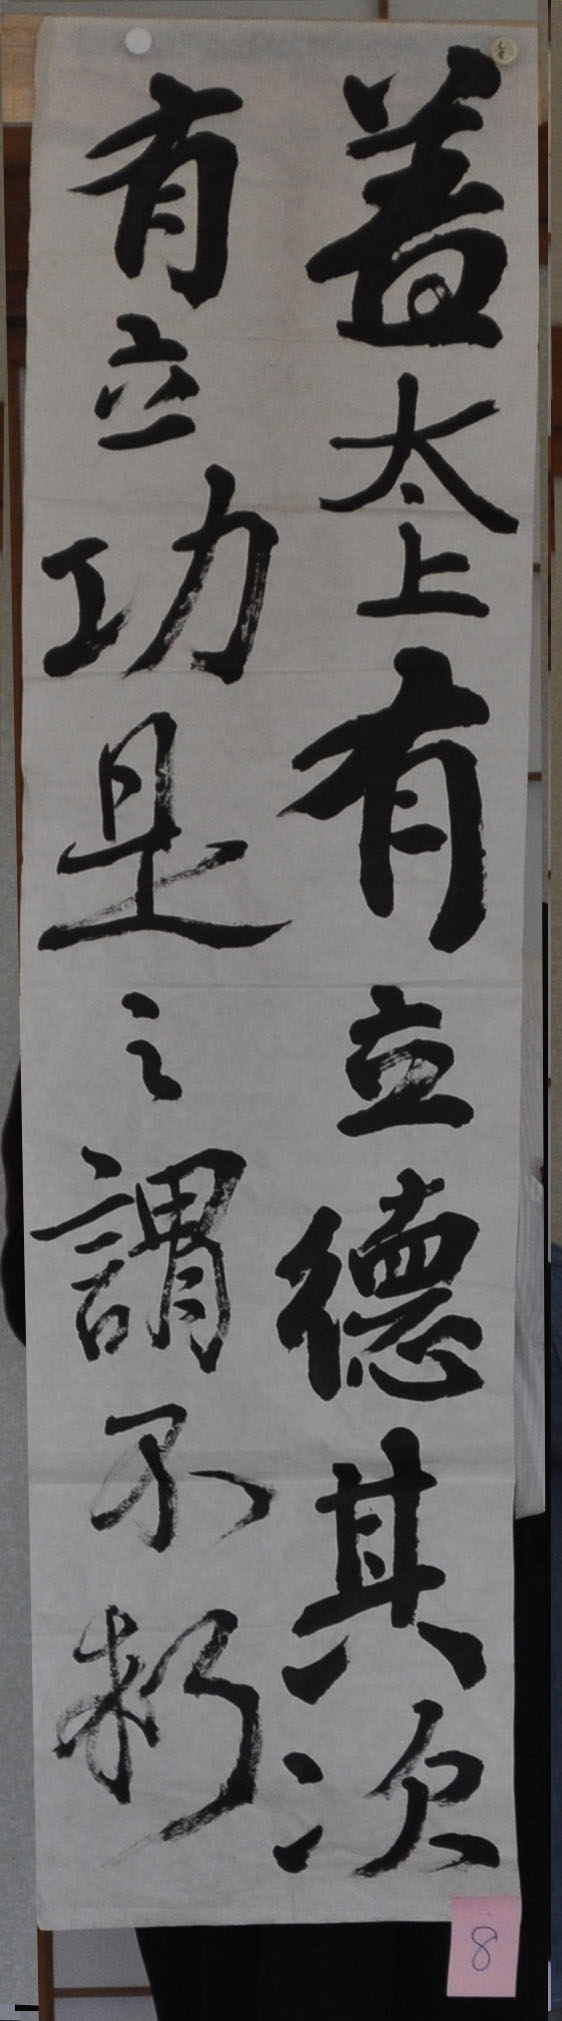 蓋太上有立德其次
有立功是之謂不朽
8